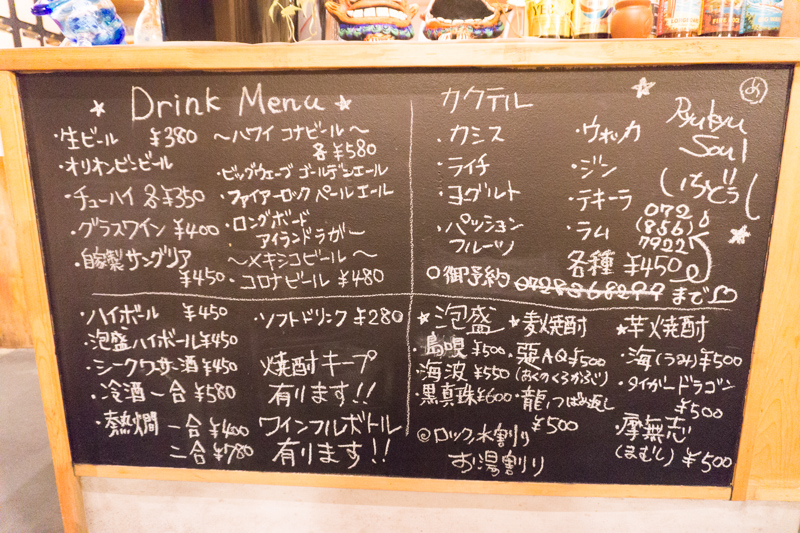 ★ Drink Menu ★
・生ビール ¥380
・オリオンビンビール
・チューハイ 各¥350
・グラスワイン ¥400
・自家製サングリア
¥450
〜ハワイ コナビール〜
各¥580
・ビッグウェーブ ゴールデンエール
・ファイアーロック ペールエール
・ロングボード
アイランドラガー
〜メキシコビール〜
・コロナビール ¥480
カクテル
・カシス
・ライチ
・ヨーグルト
・パッション
フルーツ
・ウォッカ
・ジン
・テキーラ
・ラム
各種 ¥450
Ryukyu
Soul
いちどぅし
072
(856)
7922
○御予約 まで♡
・ハイボール ¥450
・泡盛ハイボール ¥450
・シークワーサー酒 ¥450
・冷酒 一合 ¥580
・熱燗 一合 ¥400
二合 ¥780
・ソフトドリンク ¥280
焼酎キープ
有ります!!
ワインフルボトル
有ります!!
★泡盛
・島唄 ¥500
・海波 ¥550
・黒真珠 ¥600
★麦焼酎
・悪AQ ¥500
(あくのくろかぶと)
・龍/つばめ返し
¥500
◎ロック,水割り
お湯割り
★芋焼酎
・海(うみ) ¥500
・タイガードラゴン
¥500
・摩無志
(まむし) ¥500